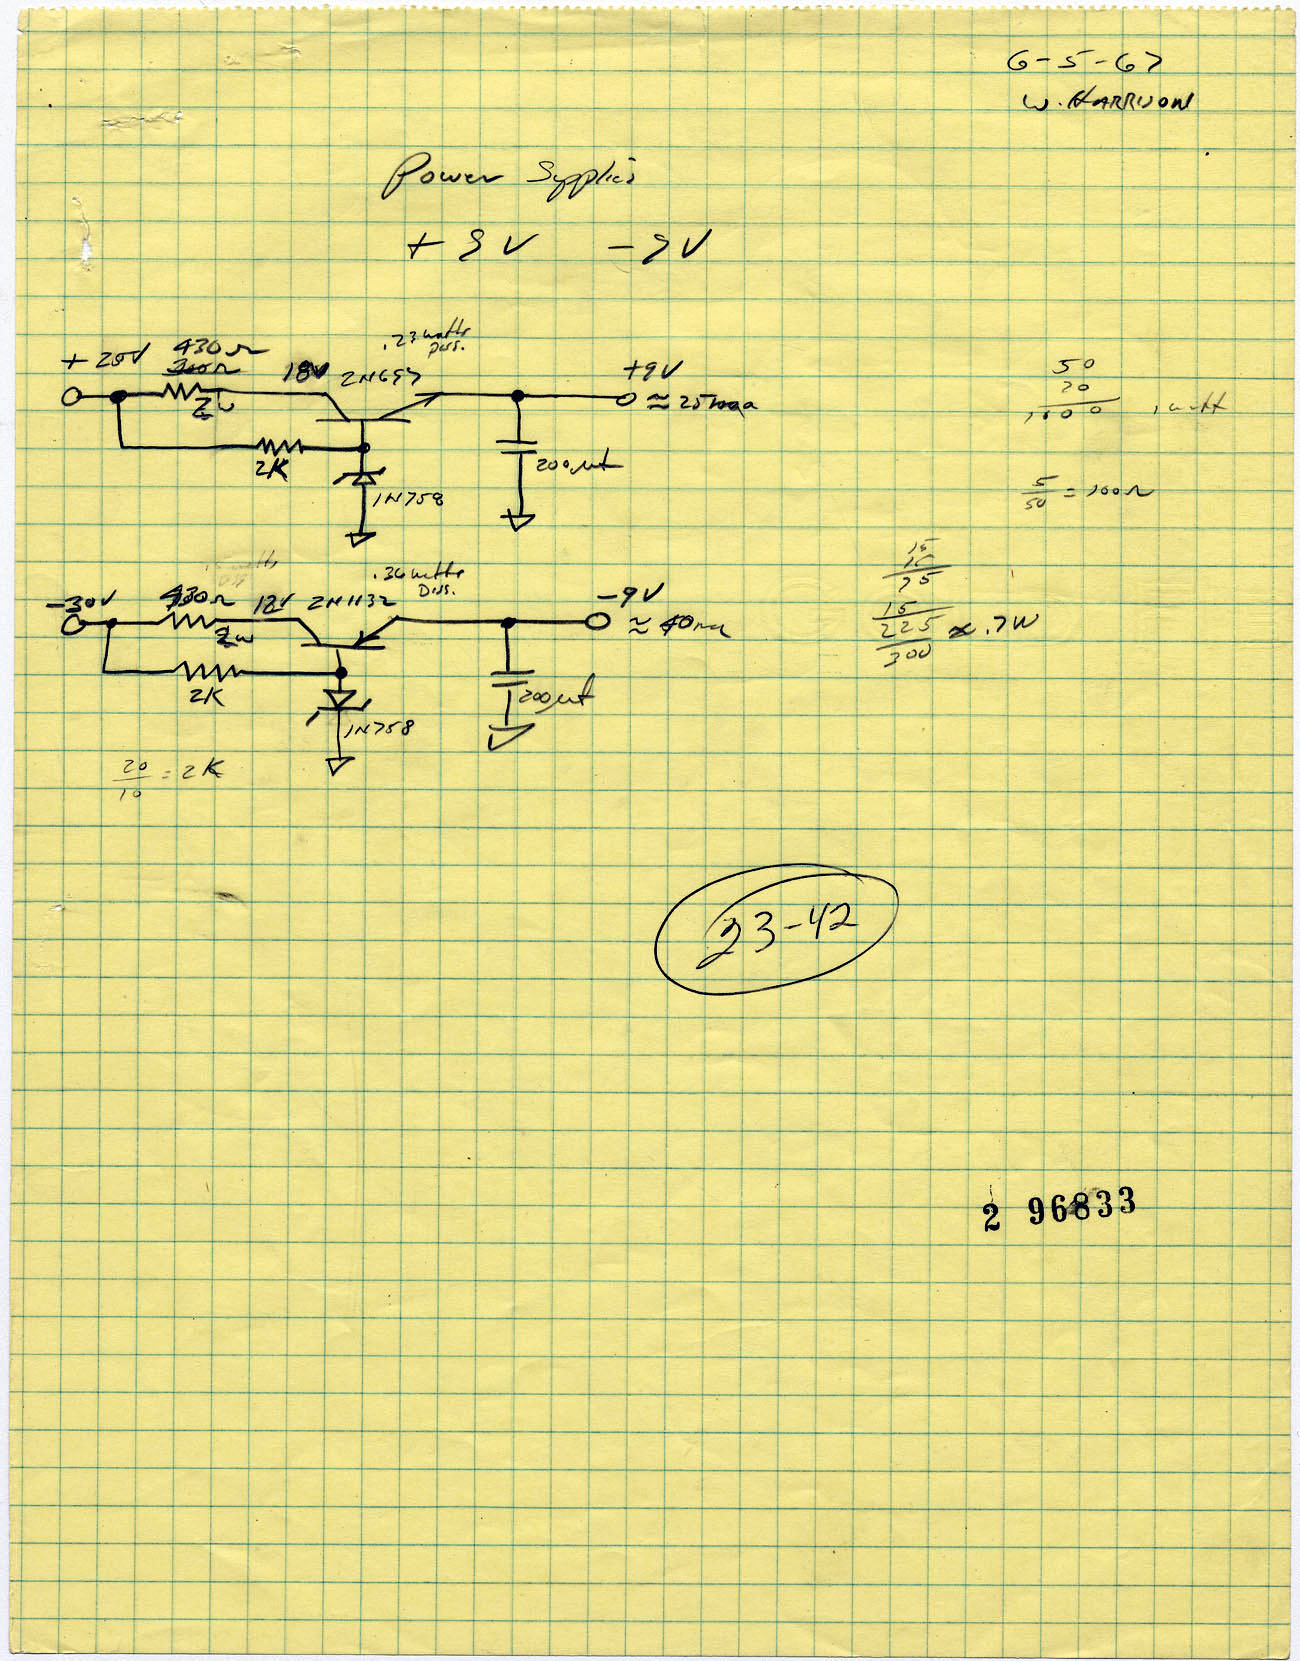 6-5-67
W. HARRISON
Power Supplies
+9V -9V
.23 watts
Diss.
430Ω
300Ω
2W
18V 2N697
+9V
≈25ma
2K
1N758
200μf
50
20
1000 .1 watt
5/50 = 100Ω
.36 watts
Diss.
-30V 430Ω 12V 2N1132
2W
-9V
≈40ma
2K
1N758
200μf
20/10 = 2K
15
15
75
15
225
300 ≈ .7W
23-42
2 96833